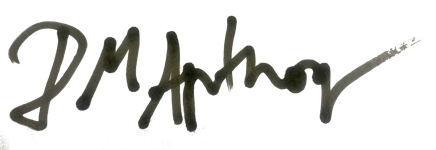 DM Anthony